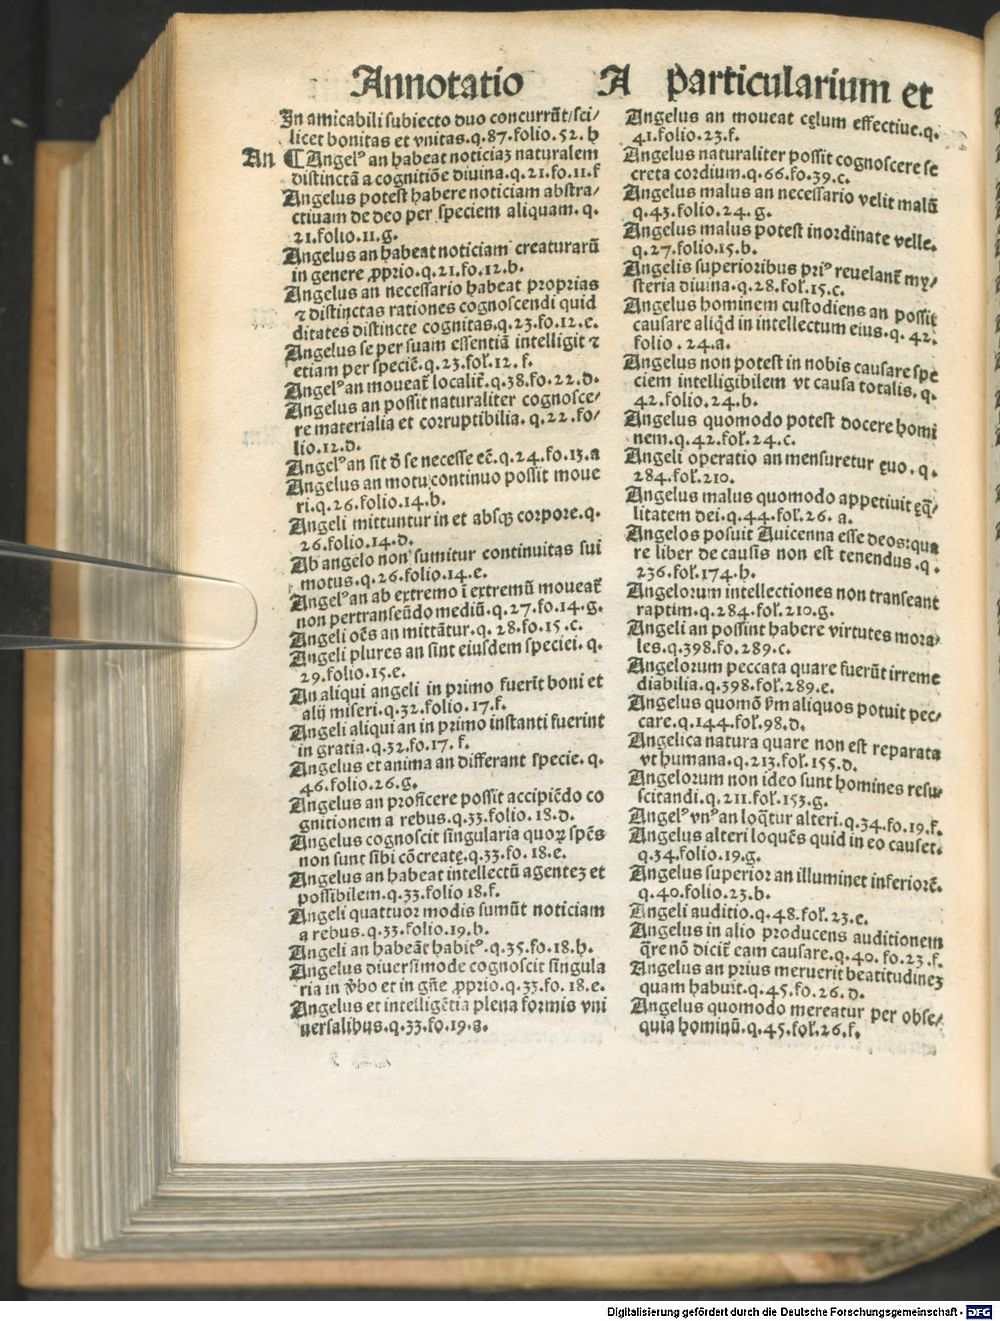 Annotatio A particularium et
In amicabili subiecto duo concurrūt/sci/
licet bonitas et vnitas.q.87.folio.52. h
An ¶ Angelꝰ an habeat noticiaȝ naturalem
distinctā a cognitiōe diuina.q.21.fo.11.f
Angelus potest habere noticiam abstra/
ctiuam de deo per speciem aliquam. q.
21.folio.11.g.
Angelus an habeat noticiam creaturarū
in genere ꝓprio.q.21.fo.12.b.
Angelus an necessario habeat proprias
⁊ distinctas rationes cognoscendi quid
ditates distincte cognitas.q.23.fo.12.e.
Angelus se per suam essentiā intelligit ⁊
etiam per speciē.q.23.fol̄.12. f.
Angelꝰ an moueat̄ localit̄.q.38.fo.22.d.
Angelus an possit naturaliter cognosce/
re materialia et corruptibilia. q.22.fo/
lio.12.d.
Angelꝰ an sit d̄ se necesse eē.q.24.fo.13.a
Angelus an motu continuo possit moue
ri.q.26.folio.14.b.
Angeli mittuntur in et absqꝫ corpore.q.
26.folio.14.d.
Ab angelo non sumitur continuitas sui
motus.q.26.folio.14.e.
Angelꝰ an ab extremo ī extremū moueat̄
non pertranseūdo mediū.q.27.fo.14.g.
Angeli oēs an mittātur.q. 28.fo.15 .c.
Angeli plures an sint eiusdem speciei. q.
29.folio.15.e.
An aliqui angeli in primo fuerīt boni et
alij miseri.q.32.folio. 17.f.
Angeli aliqui an in primo instanti fuerint
in gratia.q.32.fo.17. f.
Angelus et anima an differant specie. q.
46.folio.26.g.
Angelus an proficere possit accipiēdo co
gnitionem a rebus.q.33.folio. 18.d.
Angelus cognoscit singularia quoꝝ spēs
non sunt sibi cōcreatę.q.33.fo. 18.e.
Angelus an habeat intellectū agenteȝ et
possibilem.q.33.folio 18.f.
Angeli quattuor modis sumūt noticiam
a rebus.q.33.folio.19.b.
Angeli an habeāt habitꝰ.q.35.fo.18.h.
Angelus diuersimode cognoscit singula
ria in v̄bo et in gn̄e ꝓprio.q.33.fo. 18.e.
Angelus et intelligētia plena formis vni
uersalibus.q.33.fo.19.a.
Angelus an moueat cęlum effectiue.q.
41.folio.23.f.
Angelus naturaliter possit cognoscere se
creta cordium.q.66.fo.39.c.
Angelus malus an necessario velit malū
q.43.folio.24. g.
Angelus malus potest inordinate velle.
q.27.folio.15.b.
Angelis superioribus priꝰ reuelant̄ my/
steria diuina.q.28.fol̄.15.c.
Angelus hominem custodiens an possit
causare aliqd̄ in intellectum eius.q. 42.
folio . 24.a.
Angelus non potest in nobis causare spe
ciem intelligibilem vt causa totalis. q.
42.folio.24.b.
Angelus quomodo potest docere homi
nem.q.42.fol̄.24.c.
Angeli operatio an mensuretur ęuo . q.
284.fol̄.210.
Angelus malus quomodo appetiuit ęq̄/
litatem dei.q.44.fol̄.26. a.
Angelos posuit Auicenna esse deos:qua
re liber de causis non est tenendus .q .
236.fol̄.174.h.
Angelorum intellectiones non transeant
raptim.q.284.fol̄.210.g.
Angeli an possint habere virtutes mora/
les.q.398.fo.289.c.
Angelorum peccata quare fuerūt irreme
diabilia.q.398.fol̄.289.e.
Angelus quomō s̄m aliquos potuit pec/
care.q.144.fol̄.98.d.
Angelica natura quare non est reparata
vt humana.q.213.fol̄.155.d.
Angelorum non ideo sunt homines resu/
scitandi.q.211.fol̄.153.g.
Angelꝰ vnꝰ an loq̄tur alteri.q.34.fo.19.f.
Angelus alteri loquēs quid in eo causet.
q.34.folio.19.g.
Angelus superior an illuminet inferiorē.
q.40.folio.23.b.
Angeli auditio.q.48.fol̄.23.e.
Angelus in alio producens auditionem
q̄re nō dicit̄ eam causare.q.40. fo.23 .f.
Angelus an prius meruerit beatitudineȝ
quam habuit.q.45.fo.26.d.
Angelus quomodo mereatur per obse/
quia hominū.q.45.fol̄.26.f.
Digitalisierung gefördert durch die Deutsche Forschungsgemeinschaft - DFG